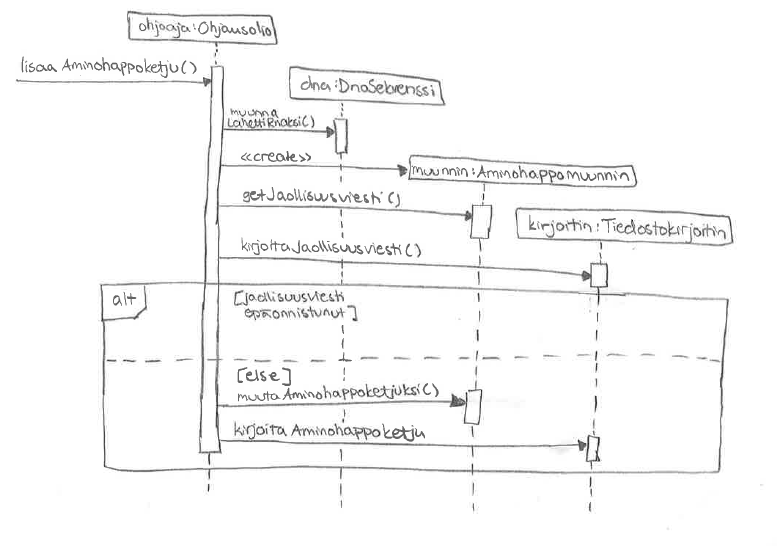 ohjaaja:Ohjausolio
lisaa Aminohappoketju()
dna:DnaSekvenssi
muunna
LahettiRnaksi()
<<create>>
muunnin:Aminohappomuunnin
getJaollisuusviesti()
kirjoitin:Tiedostokirjoitin
kirjoitaJaollisuusviesti()
alt
[jaollisuusviesti
epäonnistunut]
[else]
muutaAminohappoketjuksi()
kirjoita Aminohappoketju